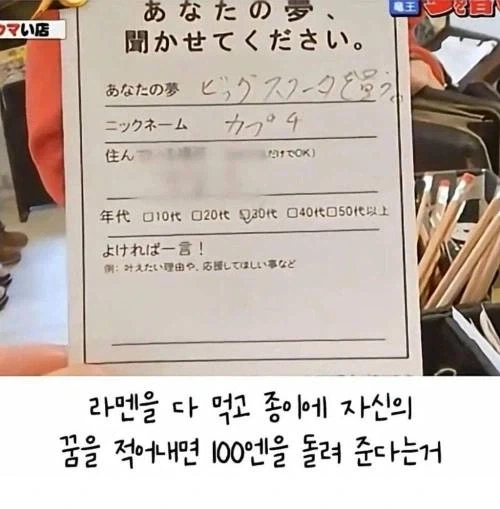 マい店
竜王
あなたの夢、
聞かせてください。
あなたの夢 ビッグスクータを買う。
ニックネーム カプチ
住ん だけでOK)
年代 □10代 □20代 ☑30代 □40代□50代以上
よければ一言!
例: 叶えたい理由や、応援してほしい事など
라멘을 다 먹고 종이에 자신의
꿈을 적어내면 100엔을 돌려 준다는거